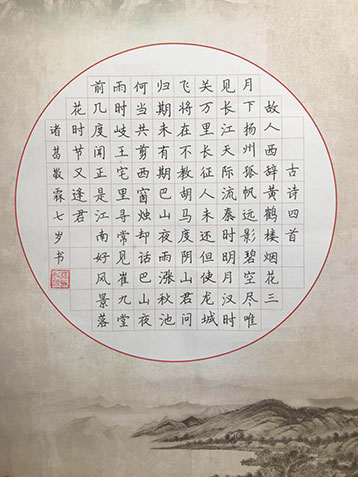 古诗四首
故人西辞黄鹤楼烟花三
月下扬州孤帆远影碧空尽唯
见长江天际流秦时明月汉时
关万里长征人未还但使龙城
飞将在不教胡马度阴山君问
归期未有期巴山夜雨涨秋池
何当共剪西窗烛却话巴山夜
雨时岐王宅里寻常见崔九堂
前几度闻正是江南好风景落
花时节又逢君
诸葛敬霖七岁书